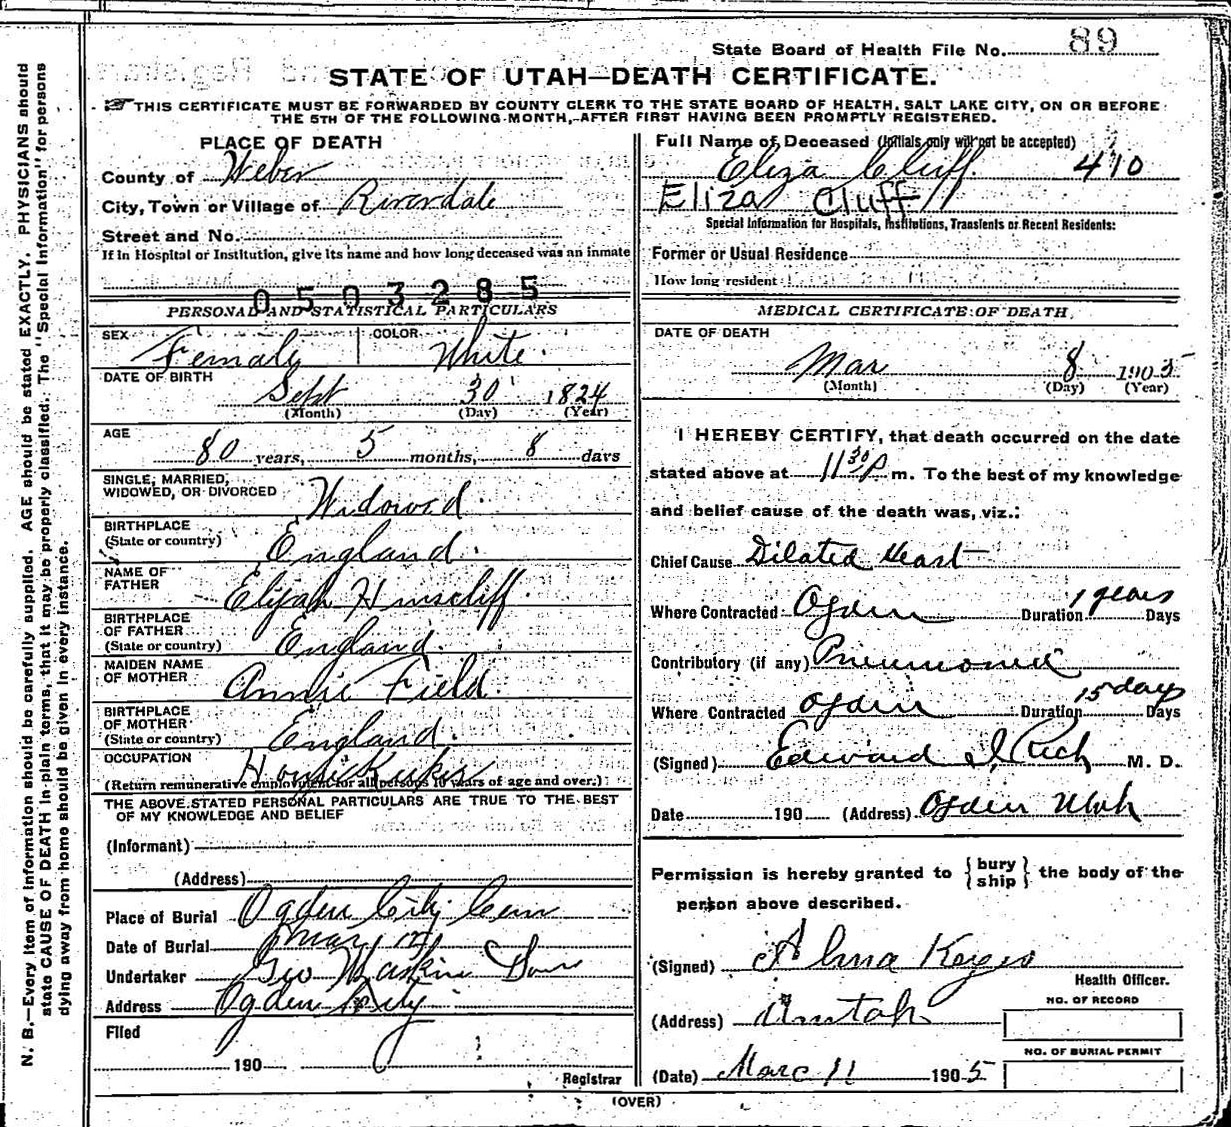 State Board of Health File No. 89
STATE OF UTAH—DEATH CERTIFICATE.
THIS CERTIFICATE MUST BE FORWARDED BY COUNTY CLERK TO THE STATE BOARD OF HEALTH, SALT LAKE CITY, ON OR BEFORE
THE 5TH OF THE FOLLOWING MONTH, AFTER FIRST HAVING BEEN PROMPTLY REGISTERED.
PLACE OF DEATH
County of Weber
City, Town or Village of Riverdale
Street and No.
If in Hospital or Institution, give its name and how long deceased was an inmate
0503285
PERSONAL AND STATISTICAL PARTICULARS
SEX Female COLOR White.
DATE OF BIRTH
Sept 30 1824
(Month) (Day) (Year)
AGE
80 years, 5 months, 8 days
SINGLE, MARRIED,
WIDOWED, OR DIVORCED Widowed.
BIRTHPLACE
(State or country) England.
NAME OF
FATHER Elijah Hinscliff.
BIRTHPLACE
OF FATHER
(State or country) England.
MAIDEN NAME
OF MOTHER Annie Field.
BIRTHPLACE
OF MOTHER
(State or country) England.
OCCUPATION
(Return remunerative employment for all persons 10 years of age and over.)
THE ABOVE STATED PERSONAL PARTICULARS ARE TRUE TO THE BEST
OF MY KNOWLEDGE AND BELIEF
(Informant)
(Address)
Place of Burial Ogden City Cem
Date of Burial Mar 12
Undertaker Geo
Address Ogden City
Filed
190
Registrar
Full Name of Deceased (Initials only will not be accepted)
Eliza Cluff. 410
Eliza Cluff
Special Information for Hospitals, Institutions, Transients or Recent Residents:
Former or Usual Residence
How long resident
MEDICAL CERTIFICATE OF DEATH.
DATE OF DEATH
Mar 8 1905
(Month) (Day) (Year)
I HEREBY CERTIFY, that death occurred on the date
stated above at 11 30 P m. To the best of my knowledge
and belief cause of the death was, viz.:
Chief Cause Dilated Heart
Where Contracted Ogden Duration 1 years Days
Contributory (if any) Pneumonia
Where Contracted Ogden Duration 15 days Days
(Signed) Edward I Rich M. D.
Date 190 (Address) Ogden Utah
Permission is hereby granted to { bury ship } the body of the
person above described.
(Signed) Alma Keyes
Health Officer.
(Address) Uintah
NO. OF RECORD
NO. OF BURIAL PERMIT
(Date) Marc 11 1905
(OVER)
N. B.—Every item of information should be carefully supplied. AGE should be stated EXACTLY. PHYSICIANS should
state CAUSE OF DEATH in plain terms, that it may be properly classified. The "Special Information" for persons
dying away from home should be given in every instance.